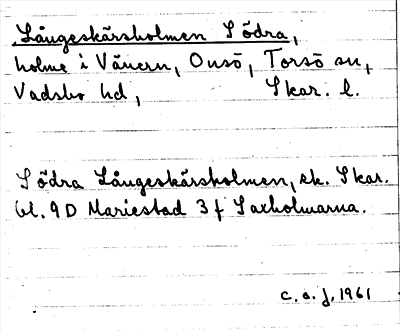 Långeskärsholmen Södra,
holme i Vänern, Onsö, Torsö sn,
Vadsbo hd, Skar. l.
Södra Långeskärsholmen, ek. Skar.
bl. 9D Mariestad 3f Saxholmarna.
c. o. f. 1961